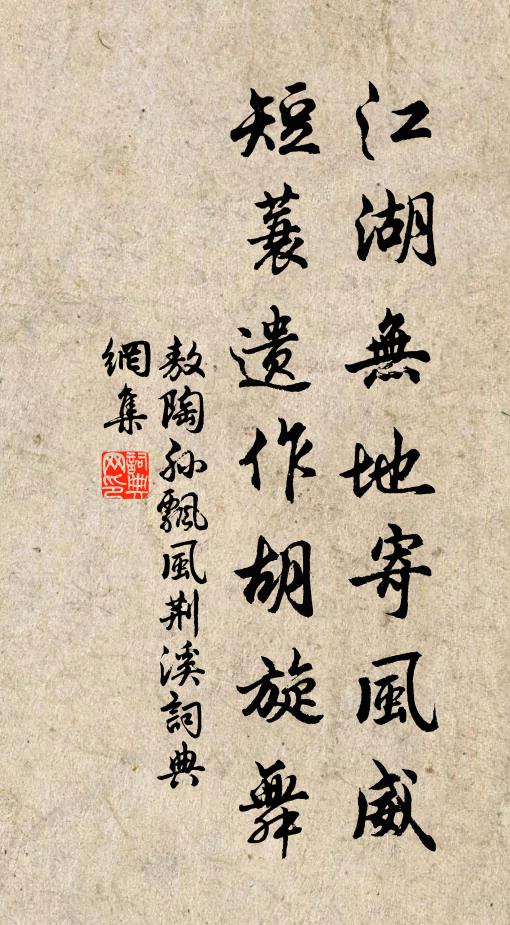 江湖無地寄風威
短蓑遺作胡旋舞
敖陶孫飄風荆溪詞典
網集
詞典網印